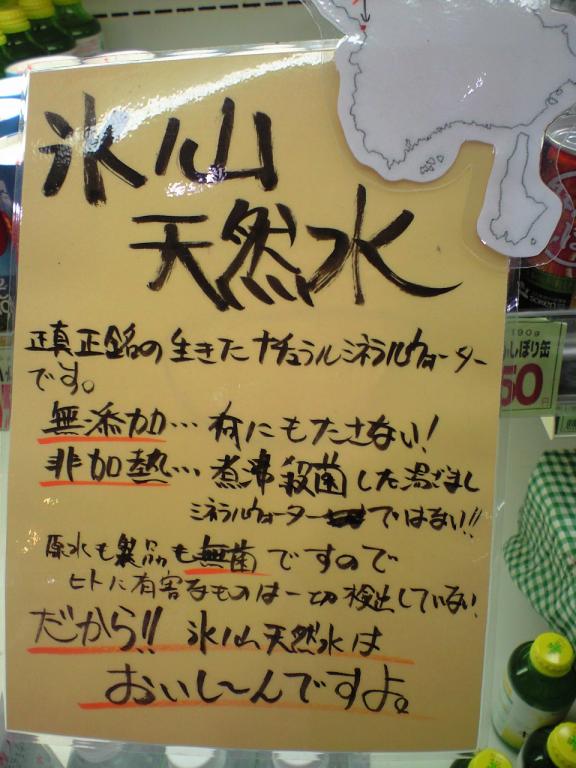 氷ノ山
天然水
正真正銘の生きたナチュラルミネラルウォーター
です。
無添加…何にもたさない!
非加熱…煮沸殺菌した湯ざまし
ミネラルウォーターではない!!
原水も製品も無菌ですので
ヒトに有害なものは一切検出していない
だから!! 氷ノ山天然水は
おいし〜んですよ。
190g
しぼり缶
50